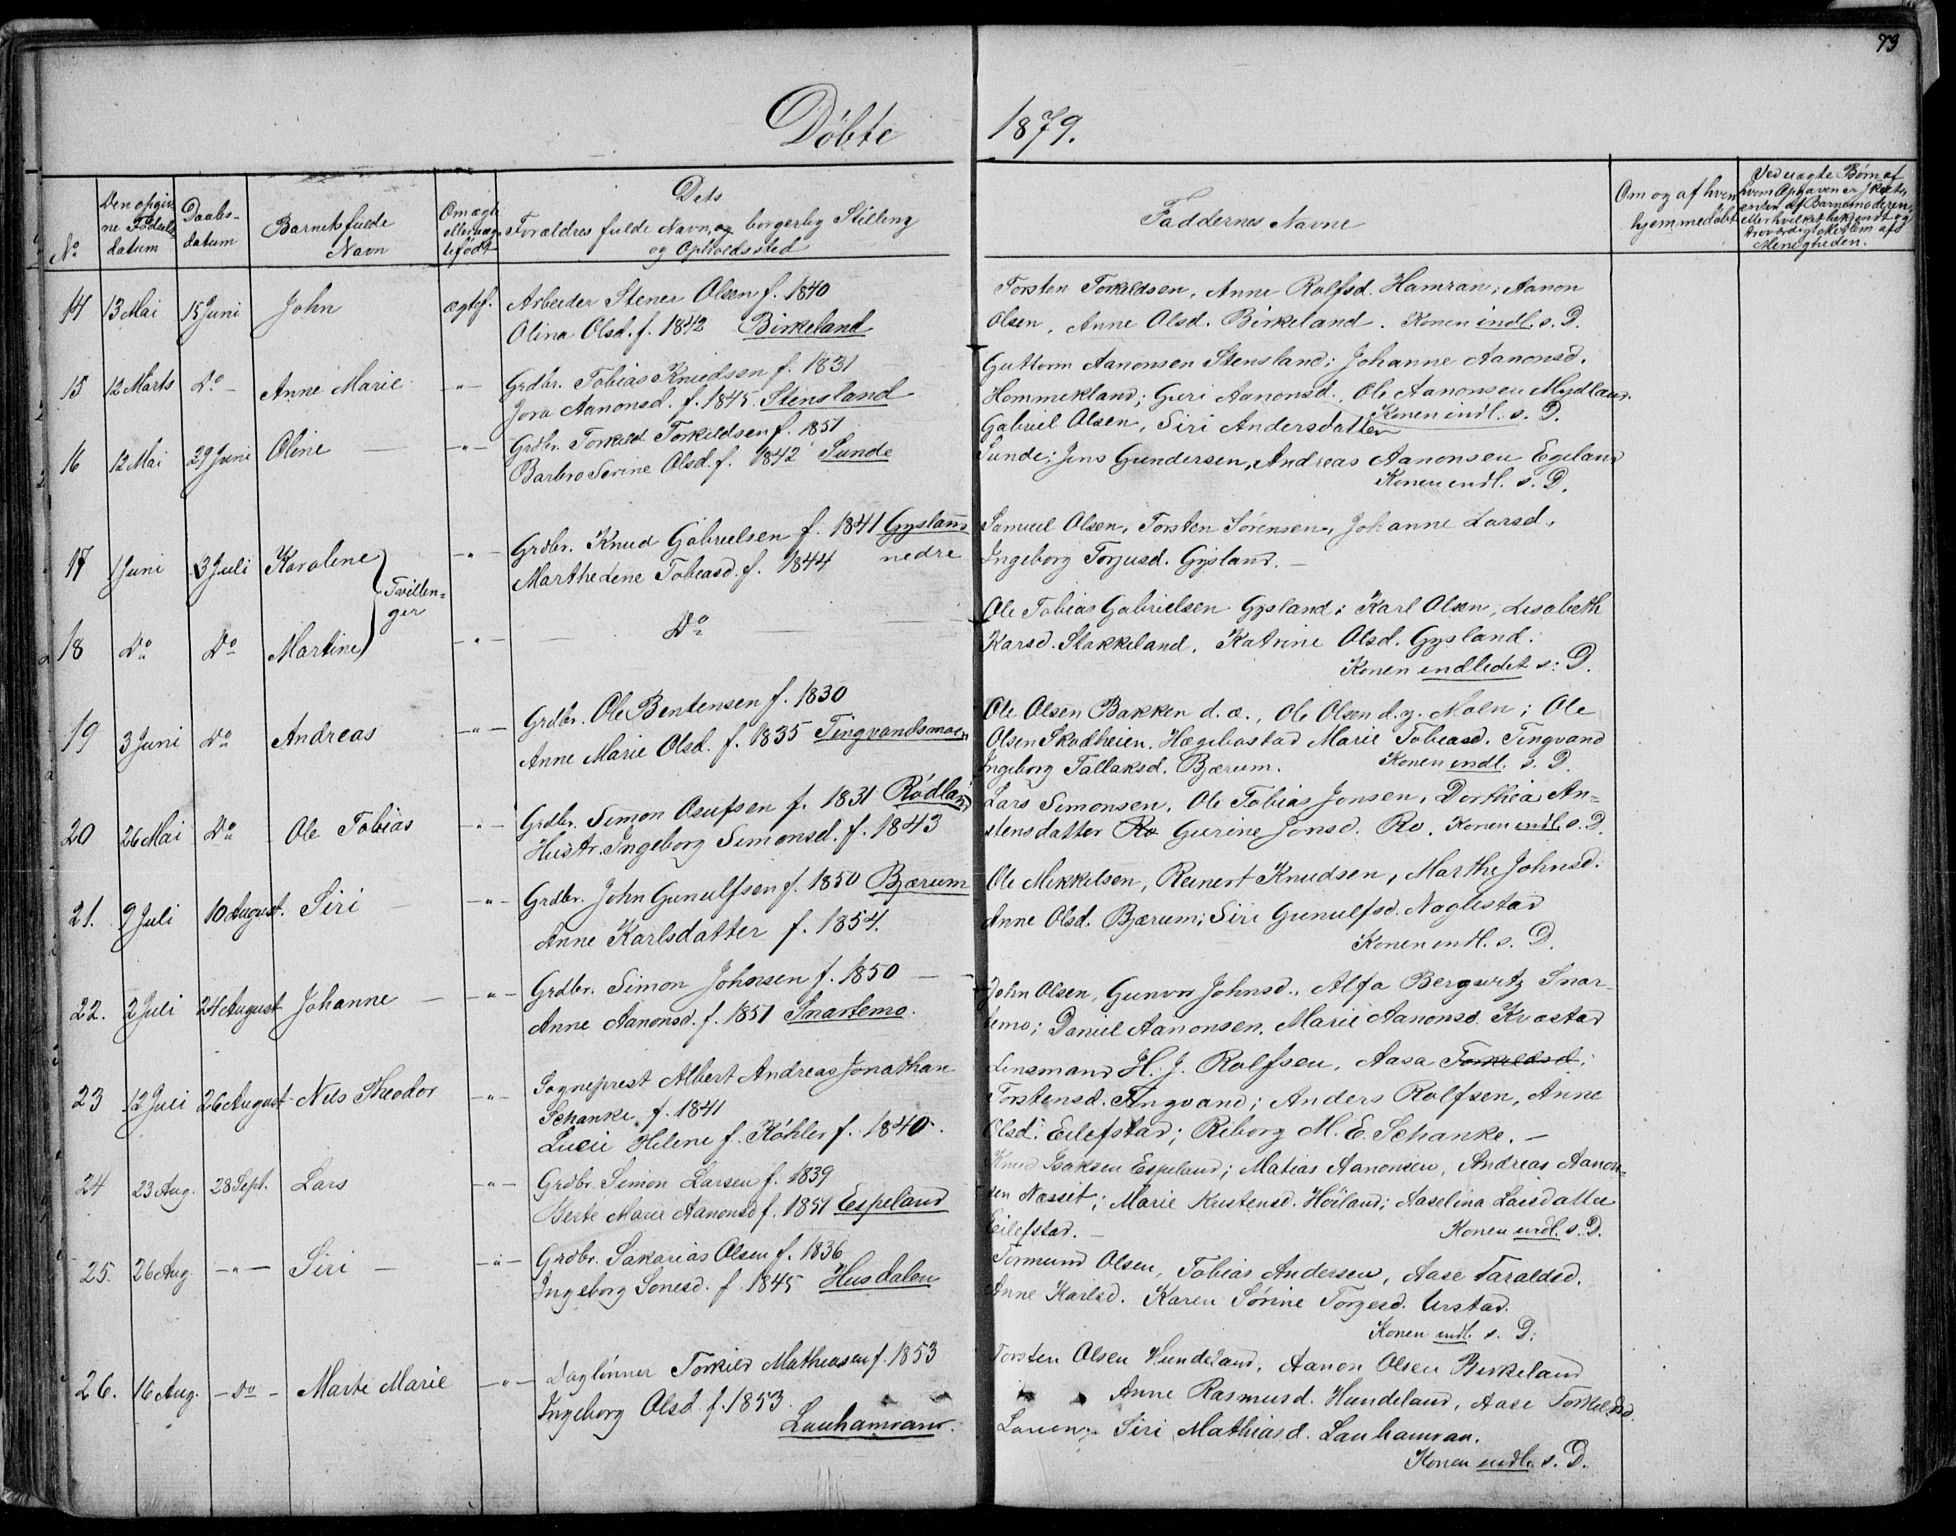 73
Døbte 1879.
No
Den opgiv
ne Fødsels
datum
Daabs-
datum
Barnets fulde
Navn
Om ægte
eller uæg
tefødt
Dets
Forældres fulde Navn, og borgerlig Stilling
og Opholdssted
Faddernes Navne
Om og af hvem
hjemmedøbt
Ved uægte Børn af
Menigheden.
14 13 Mai 15 Juni John ægtef. Arbeider Stener Olsen f. 1840
Olina Olsd. f. 1842 Birkeland
Torsten Torkildsen, Anne Rolfsd. Hamran; Aanon
Olsen, Anne Olsd. Birkeland. Konen indl. s. D.
15 12 Marts Do - Anne Marie -"- Grdbr. Tobias Knudsen f. 1831
Jora Aanonsd. f. 1845 Stensland
Guttorm Aanonsen Stensland; Johanne Aanonsd.
Hommekland; Guri Aanonsd., Ole Aanonsen Mydland.
Konen indl. s. D.
16 12 Mai 29 Juni Oline -"- Grdbr. Torkild Torkildsen f. 1851
Barbro Serine Olsd. f. 1842 Sunde
Gabriel Olsen, Siri Andersdatter
Sunde; Jens Gundersen, Andreas Aanonsen Egeland
Konen indl. s. D.
17 1 Juni 3 Juli Karoline -"- Grdbr. Knud Gabrielsen f. 1841 Gysland
Marthe Lene Tobiasd. f. 1844 nedre
Tvillen=
ger
Samuel Olsen, Torsten Sørensen, Johanne Larsd.,
Ingeborg Torjusd. Gysland. -
18 Do Do Martine -"- Do
Ole Tobias Gabrielsen Gysland; Karl Olsen, Lisabeth
Karsd. Stakkeland, Katrine Olsd. Gysland.
Konen indledet s. D.
19 3 Juni Do Andreas -"- Grdbr. Ole Bentensen f. 1830
Anne Marie Olsd. f. 1835 Tingvandsmoen
Ole Olsen Bakken d. æ., Ole Olsen d. y. Moen; Ole
Olsen Skodheien, Hægebostad Marie Tobiasd. Tingvand
Ingeborg Tallaksd. Bjærum. Konen indl. s. D.
20 26 Mai Do Ole Tobias -"- Grdbr. Simon Osufsen f. 1831 Rødland
Hustr. Ingeborg Simonsd. f. 1843
Lars Simonsen, Ole Tobias Jonsen, Dorthea An=
stensdatter Ro Gurine Jonsd. Ro. Konen indl. s. D.
21. 9 Juli 10 August. Siri - -"- Grdbr. John Gunulfsen f. 1850 Bjærum
Anne Karlsdatter f. 1854.
Ole Mikkelsen, Reinert Knudsen, Marthe Johnsd.
Anne Olsd. Bjærum; Siri Gunulfsd. Naglestad
Konen indl. s. D.
22. 2 Juli 24 August Johanne - -"- Grdbr. Simon Johnsen f. 1850
Anne Aanonsd. f. 1851 Snartemo.
John Olsen, Gunvor Johnsd., Alfa Bergwitz Snar-
temo; Daniel Aanonsen, Marie Aanonsd. Kvastad
23 12 Juli 26 August Nils Theodor -"- Sogneprest Albert Andreas Jonathan
Schanke f. 1841
Lucie Helene f. Køhler f. 1840.
Lensmand H. J. Rolfsen, Aasa Torkildsd.;
Torstensd. Tingvand; Anders Rolfsen, Anne
Olsd. Eilefstad; Riborg M. E. Schanke. -
24 23 Aug. 28 Sept. Lars -"- Grdbr. Simon Larsen f. 1839
Berte Marie Aanonsd f. 1851 Espeland
Knud Isaksen Espeland; Matias Aanonsen, Andreas Aanon=
sen Nasset; Marie Kristensd. Høiland; Aaselina Larsdatter
Eilefstad. - Konen indl. s. D.
25. 26 Aug. -"- Siri - -"- Grdbr. Sakarias Olsen f. 1836
Ingeborg Sonesd. f. 1845 Husdalen
Tormund Olsen, Tobias Andersen, Aase Taraldsd.
Anne Karlsd. Karen Sørine Torgesd. Urstad.
Konen indl. s. D.
26. 16 Aug. - Do - Marte Marie -"- Daglønner Torkild Mathiasen f. 1853
Ingeborg Olsd. f. 1853.
Lauhamran.
Torsten Olsen Hundeland, Aanon Olsen Birkeland
Anne Rasmusd. Hundeland, Aase Torkildsd.
Siri Mathiasd. Lauhamran.
Konen indl. s. D.